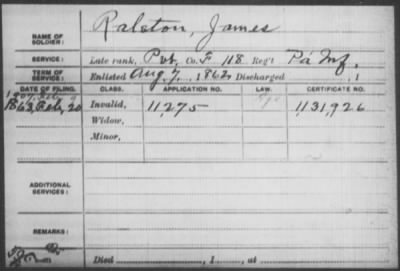 Ralston, James
NAME OF SOLDIER:
SERVICE: Late rank, Pvt, Co. F. 118 Reg't Pa Inf.
TERM OF SERVICE: Enlisted Aug 7, 1862 Discharged , 1
DATE OF FILING. CLASS. APPLICATION NO. LAW. CERTIFICATE NO.
1863 Feb, 20 Invalid, 11,275 1131,926
Widow,
Minor,
ADDITIONAL SERVICES:
REMARKS:
Died , 1 , at